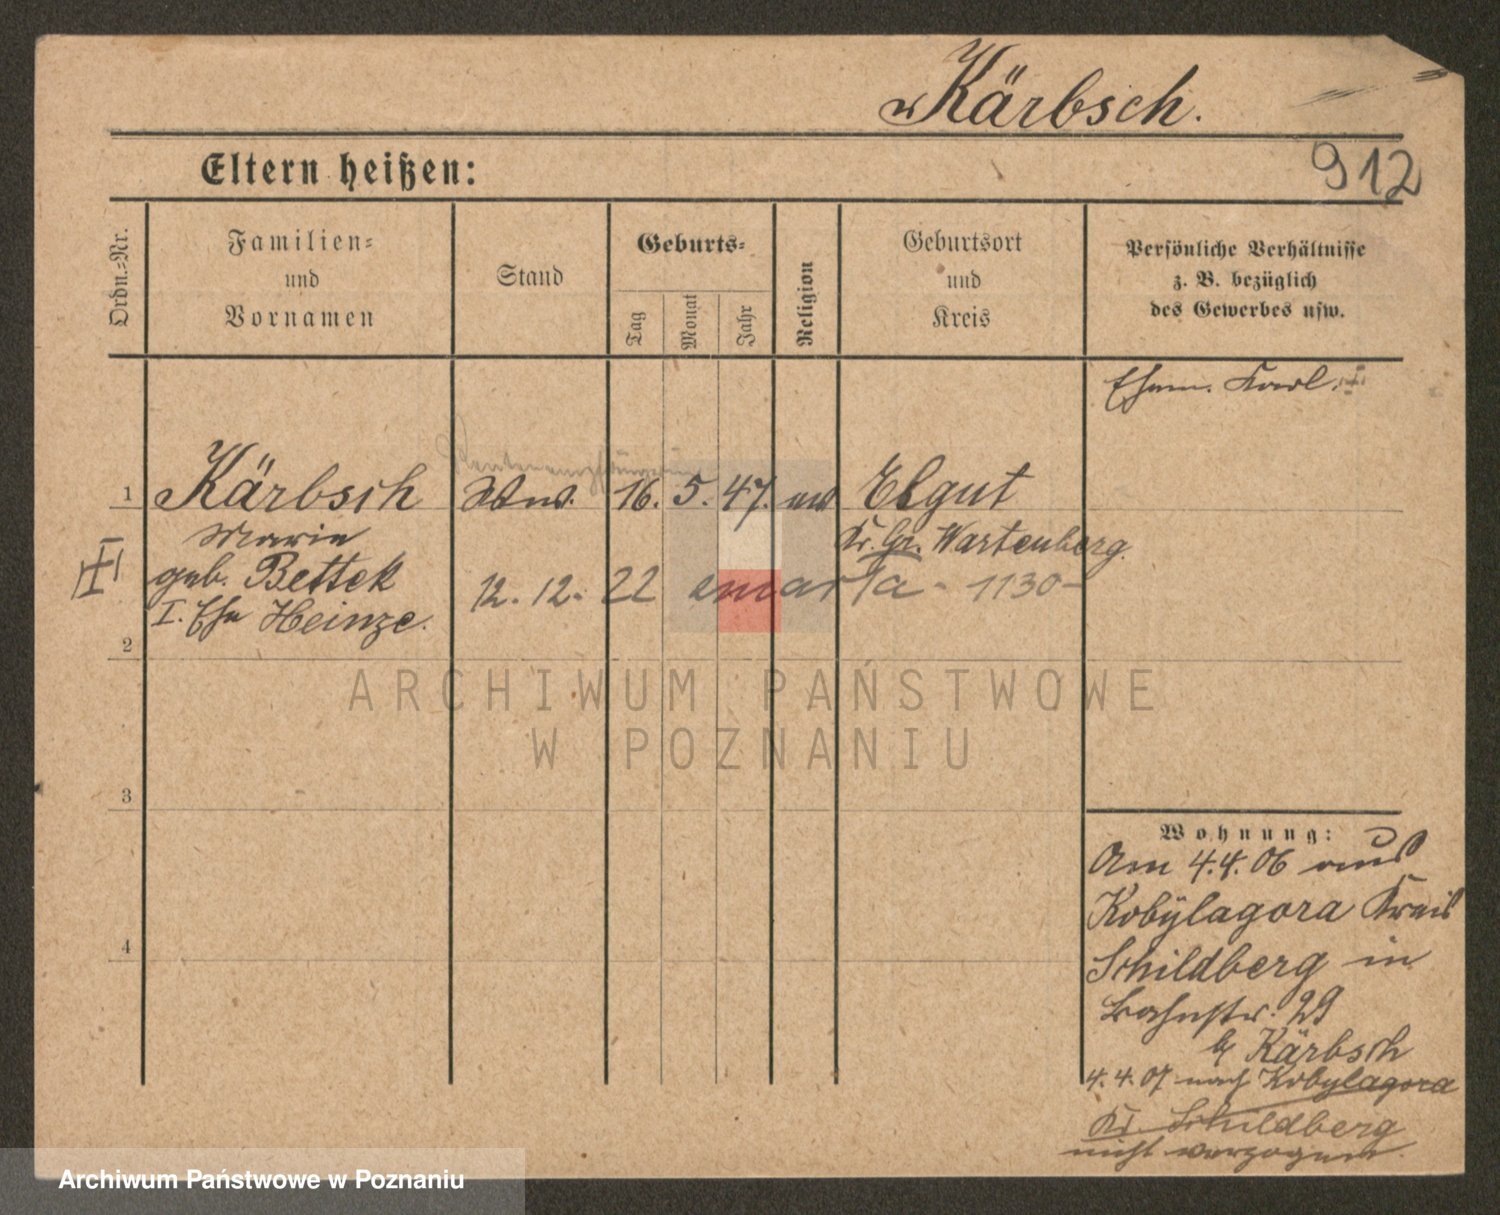 Kärbsch.
912
Eltern heißen:
Ordn.-Nr.
Familien-
und
Vornamen
Stand
Geburts-
Tag
Monat
Jahr
Religion
Geburtsort
und
Kreis
Persönliche Verhältnisse
z. B. bezüglich
des Gewerbes usw.
Ehem. Karl.
1 Kärbsch Wwe. 16. 5. 47. ev Elgut
Marie Kr. Gr. Wartenberg.
geb. Bettek 12. 12. 22 zmarła - 1130-
I. Ehe Heinze.
2
3
4
ARCHIWUM PAŃSTWOWE
W POZNANIU
Wohnung:
Am 4.4.06 aus
Kobylagora Kreis
Schildberg in
Bahnstr. 29
b/ Kärbsch
4.4.07 nach Kobylagora
Kr. Schildberg
nicht verzogen.
Archiwum Państwowe w Poznaniu